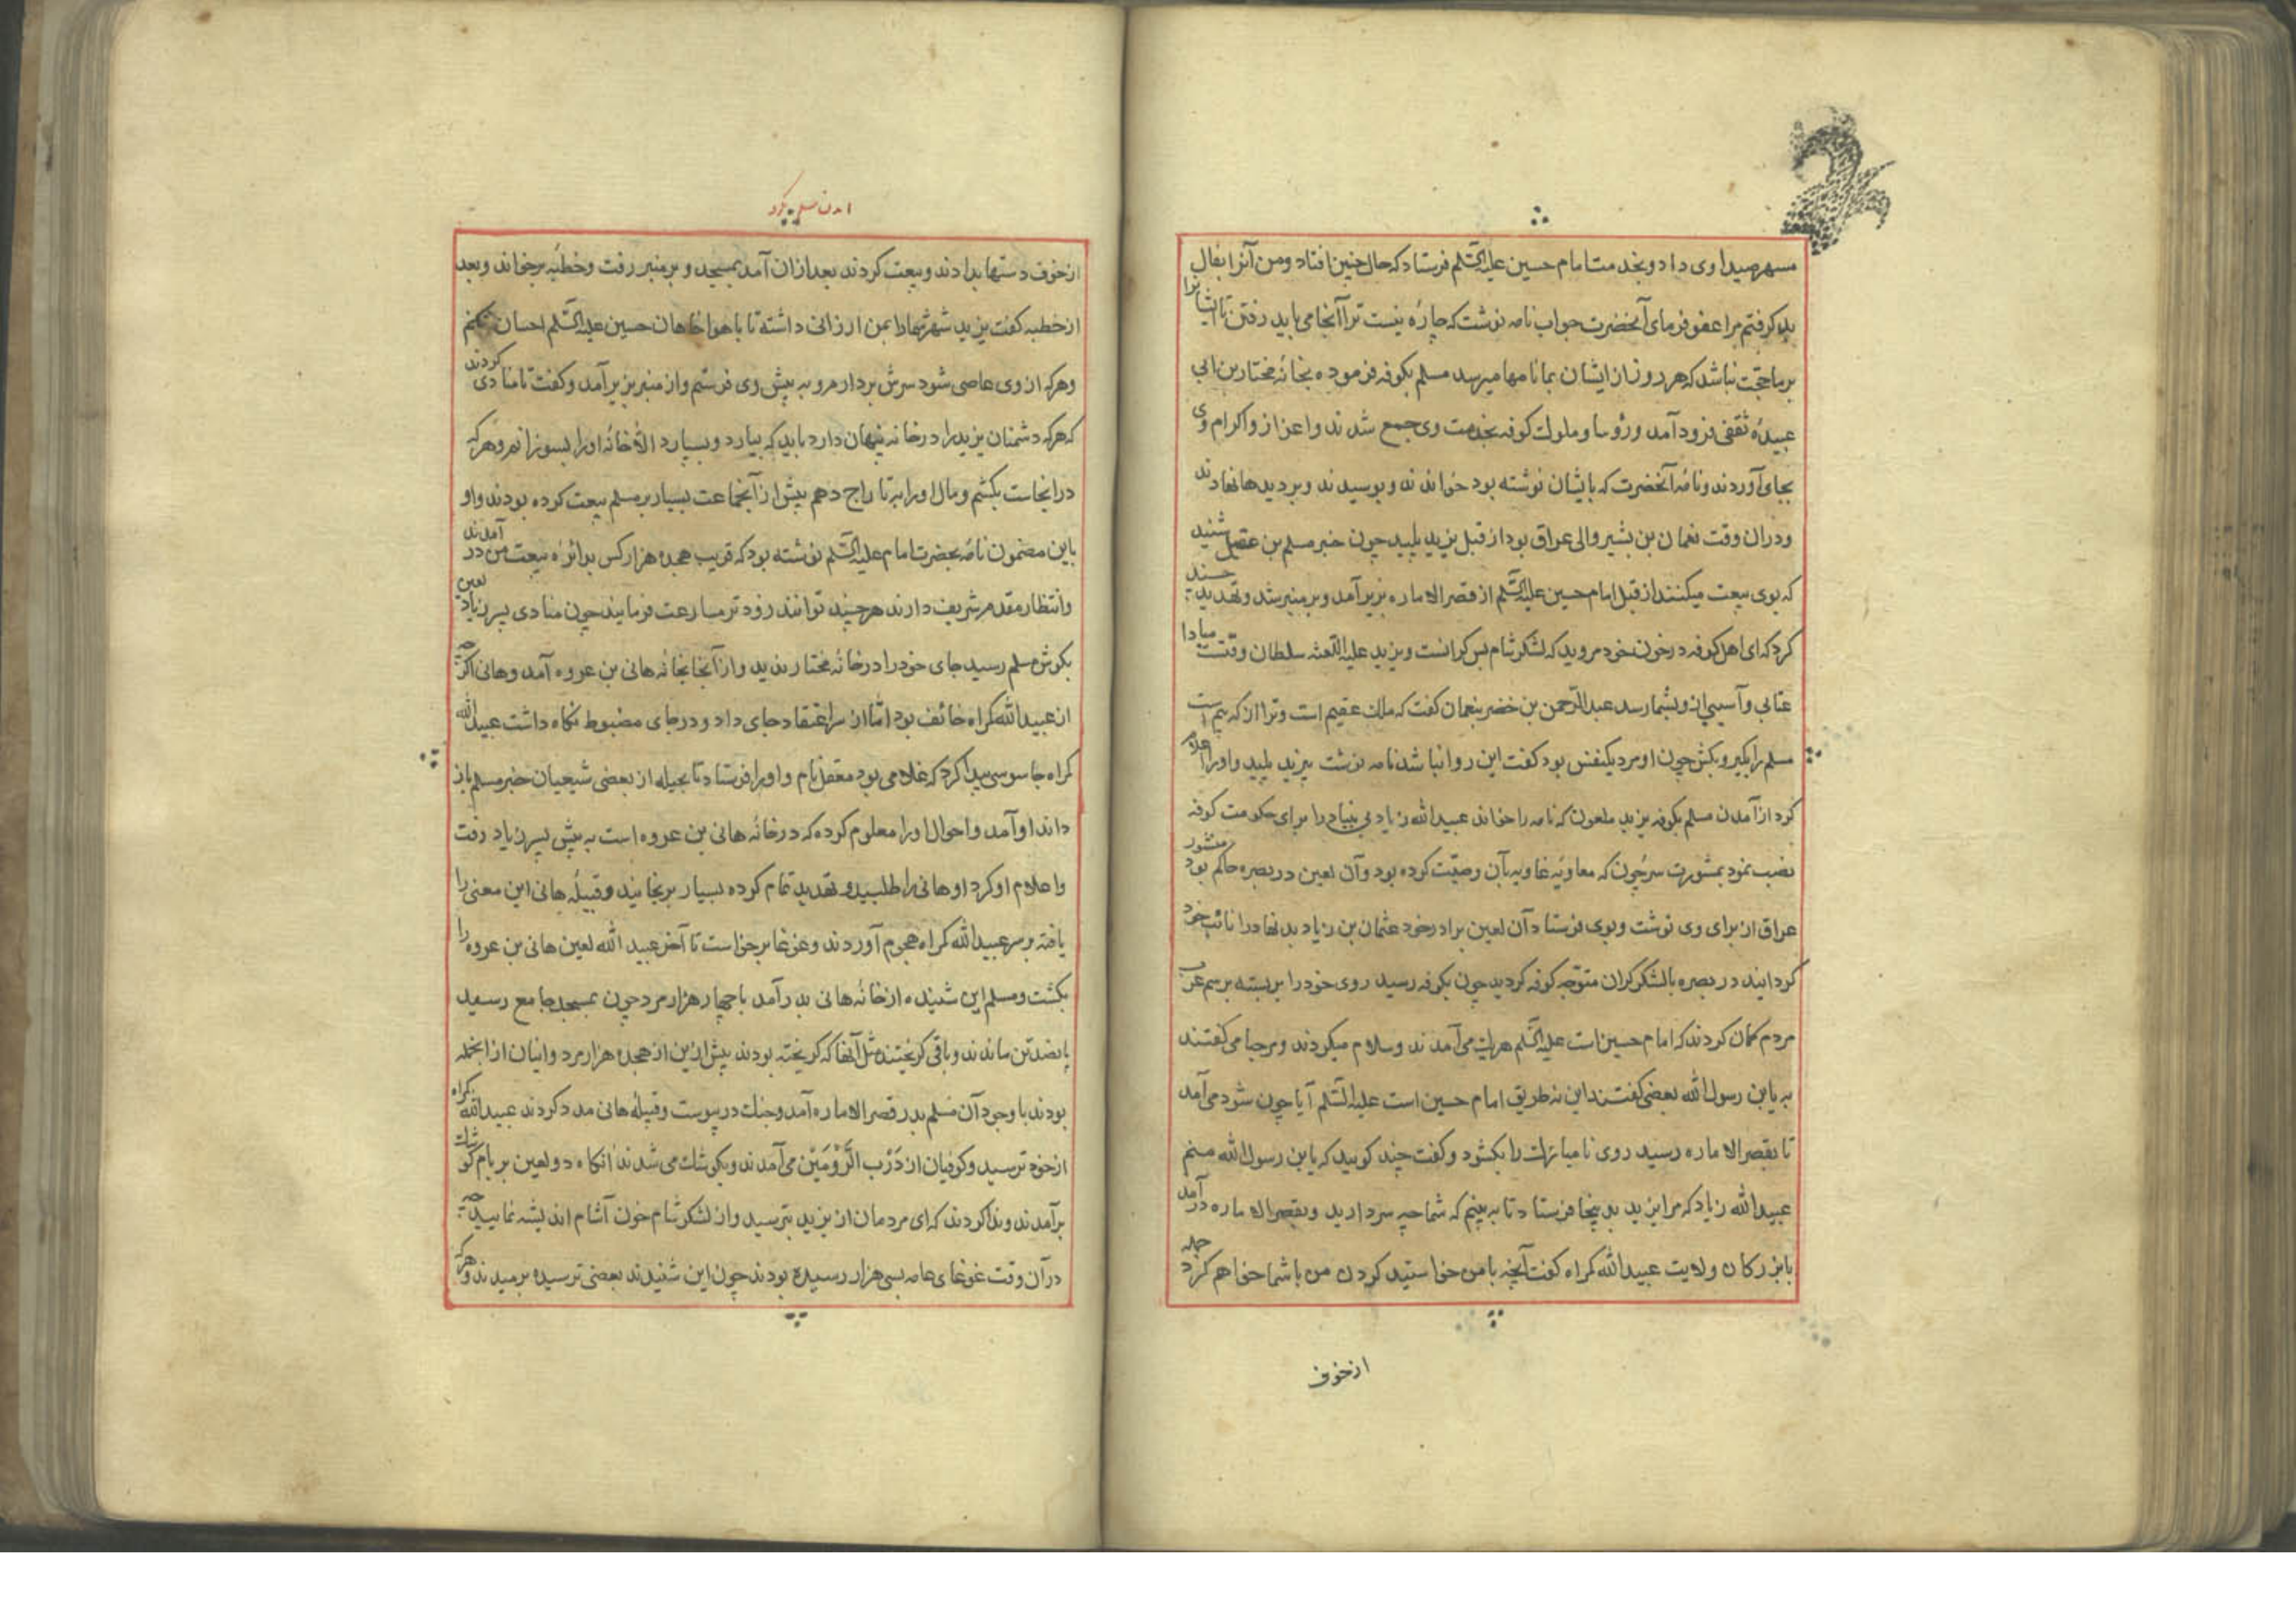 مسهر صیداوی داد و بخدمت امام حسین علیه السّلم فرستاد که حال چنین افتاد و من آنرا بفال
بد کرفتم مرا عفو فرمای آنحضرت جواب نامه نوشت که چارهٔ نیست ترا آنجا می باید رفتن تا ایشانرا
بر ما حجّت نباشد که هر روز از ایشان بما نامها میرسد مسلم بکوفه فرموده بخانهٔ مختار بن ابی
عبیدهٔ ثقفی فرود آمد و رؤسا و ملوک کوفه بخدمت وی جمع شدند و اعزاز و اکرام وی
بجای آوردند و نامهٔ آنحضرت که بایشان نوشته بود خواندند و بوسیدند و بر دیدها نهادند
و دران وقت نعمان بن بشیر والی عراق بود از قبل یزید پلید چون خبر مسلم بن عقیل شنید
که بوی بیعت میکنند از قبل امام حسین علیه السّلم از قصر الاماره بزیر آمد و بر منبر شد و تهدید چند
کرد که ای اهل کوفه در خون خود مروید که لشکر شام بس کرانست و یزید علیه اللّعنه سلطان وقتست مبادا
عتابی و آسیبی ازو بشما رسد عبدالرّحمن بن خضر بنعمان کفت که ملک عقیم است و ترا از که بیم است
مسلم را بکیر و بکش چون او مرد یکنفس بود کفت این روا نباشد نامه نوشت بیزید پلید و او را اعلام
کرد از آمدن مسلم بکوفه یزید ملعون که نامه را خواند عبیدالله زیاد بی بنیاد را برای حکومت کوفه
نصب نمود بمشورت سرجون که معاویهٔ غاویه بآن وصیّت کرده بود و آن لعین در بصره حاکم بود منشور
عراق از برای وی نوشت و بوی فرستاد آن لعین برادر خود عثمان بن زیاد بدنهاد را نائب خود
کردانید در بصره با لشکر کران متوّجه کوفه کردید چون بکوفه رسید روی خود را بر بسته برسم عرب
مردم کمان کردند که امام حسین است علیه السّلم هریک می آمدند و سلام میکردند و مرحبا می کفتند
به یابن رسول الله بعضی کفتند این نه طریق امام حسین است علیه السّلم آیا چون شود می آمد
تا بقصر الاماره رسید روی نامبارک را بکشود و کفت چند کویید که یابن رسول الله منم
عبیدالله زیاد که مرا یزید بدینجا فرستاد تا به بینم که شما چه سر دارید و بقصر الاماره در آمد
با بزرکان ولایت عبیدالله کمراه کفت آنچه با من خواستید کردن من با شما خواهم کرد جمله
از خوف
از خوف دستها بدادند و بیعت کردند بعد ازان آمد بمسجد و بر منبر رفت و خطبه برخواند و بعد
از خطبه کفت یزید شهر شما را بمن ارزانی داشته تا با هوا خاهان حسین علیه السّلم احسان نکنم
و هر که از وی عاصی شود سرش بردارم و به پیش وی فرستم و از منبر بزیر آمد و کفت تا منادی کردند
که هر که دشمنان یزید را در خانه پنهان دارد باید که بیارد و بسپارد الّا خانهٔ او را بسوزانم و هر که
در انجاست بکشم و مال او را به تاراج دهم پیش از آن جماعت بسیار بر مسلم بیعت کرده بودند و او
باین مضمون نامهٔ بحضرت امام علیه السّلم نوشته بود که قریب هجده هزار کس بدائرهٔ بیعت من در آمدند
و انتظار مقدم شریف دارند هر چند توانند زودتر مسارعت فرمایند چون منادی پسر زیاد لعین
بکوش مسلم رسید جای خود را در خانهٔ مختار ندید و از آنجا بخانهٔ هانی بن عروه آمد و هانی اکرچه
از عبیدالله کمراه خائف بود امّا از سر اعتقاد جای داد و در جای مضبوط نکاه داشت عبیدالله
کمراه جاسوسی پیدا کرد که غلامی بود معقل نام و او را فرستاد تا بحیله از بعضی شیعیان خبر مسلم باز
داند او آمد و احوال او را معلوم کرده که در خانهٔ هانی بن عروه است به پیش پسر زیاد رفت
و اعلام او کرد او هانی را طلبید و تهدید تمام کرده بسیار برنجانید و قبیلهٔ هانی این معنی را
یافته بر سر عبیدالله کمراه هجوم آوردند و غوغا برخواست تا آخر عبید الله لعین هانی بن عروه را
بکشت و مسلم این شنیده از خانهٔ هانی بدر آمد با چهار هزار مرد چون بمسجد جامع رسید
پانصد تن ماندند و باقی کریختند مثل آنها که کریخته بودند پیش ازین از هجده هزار مرد و اینان از انجمله
بودند با وجود آن مسلم بدر قصر الاماره آمد و جنک در پیوست و قبیلهٔ هانی مدد کردند عبیدالله کمراه
از خود ترسید و کوفیان از دَرْب الرَّوْمَیّن می آمدند و بکوشک می شدند انکاه دو لعین بر بام کوشک
بر آمدند و ندا کردند که ای مردمان از یزید بترسید و از لشکر شام خون آشام اندیشه نمایید چه
در آن وقت غوغای عامه بسی هزار رسیده بودند چون این شنیدند بعضی ترسیده برمیدند و هر که